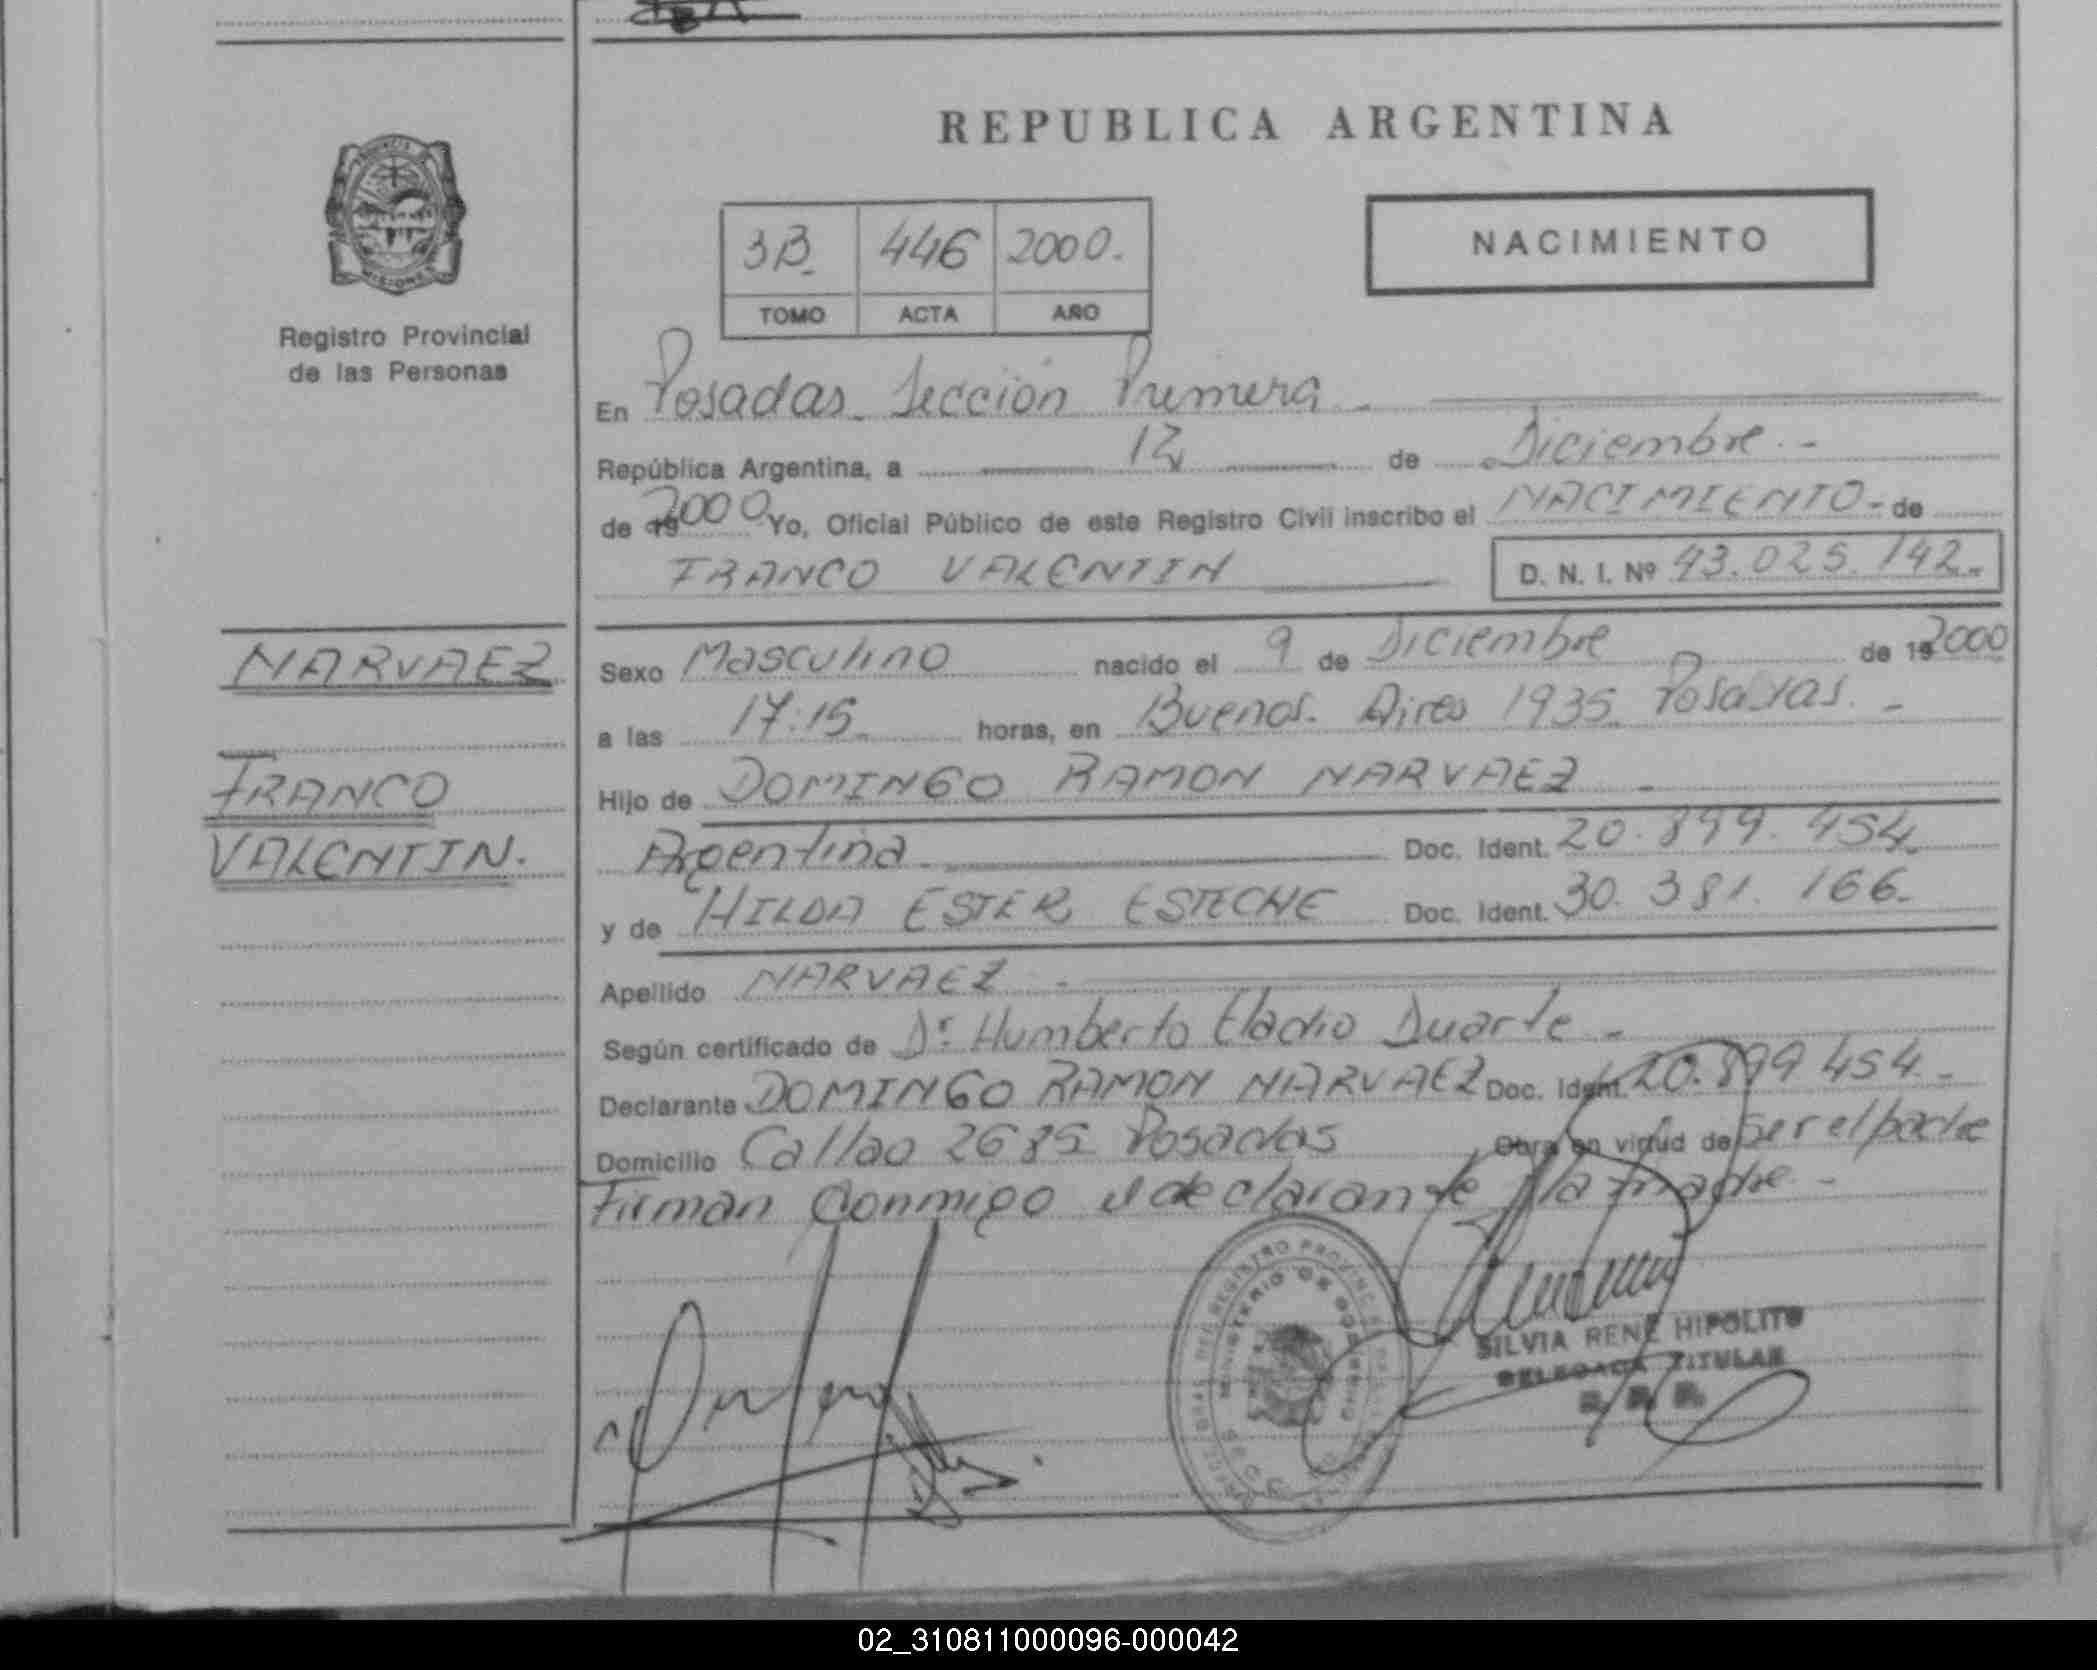 REPUBLICA ARGENTINA
3B. 446 2000.
TOMO ACTA AÑO
NACIMIENTO
Registro Provincial
de las Personas
En Posadas Sección Primera
República Argentina, a 12 de Diciembre
de 19 2000 Yo, Oficial Público de este Registro Civil inscribo el NACIMIENTO de
FRANCO VALENTIN D. N. I. Nº 43.025.142
NARVAEZ
FRANCO
VALENTIN.
Sexo Masculino nacido el 9 de Diciembre de 19 2000
a las 17:15 horas, en Buenos Aires 1935 Posadas.
Hijo de DOMINGO RAMON NARVAEZ
Argentina Doc. Ident. 20.899.454
y de HILDA ESTER ESTECHE Doc. Ident. 30.381.166
Apellido NARVAEZ
Según certificado de Dr. Humberto Eladio Duarte
Declarante DOMINGO RAMON NARVAEZ Doc. Ident. 20.899 454
Domicilio Callao 2685 Posadas Obra en virtud de Ser el padre
Firman Conmigo el declarante y la madre
SILVIA RENE HIPOLITO
DELEGADA TITULAR
02_310811000096-000042